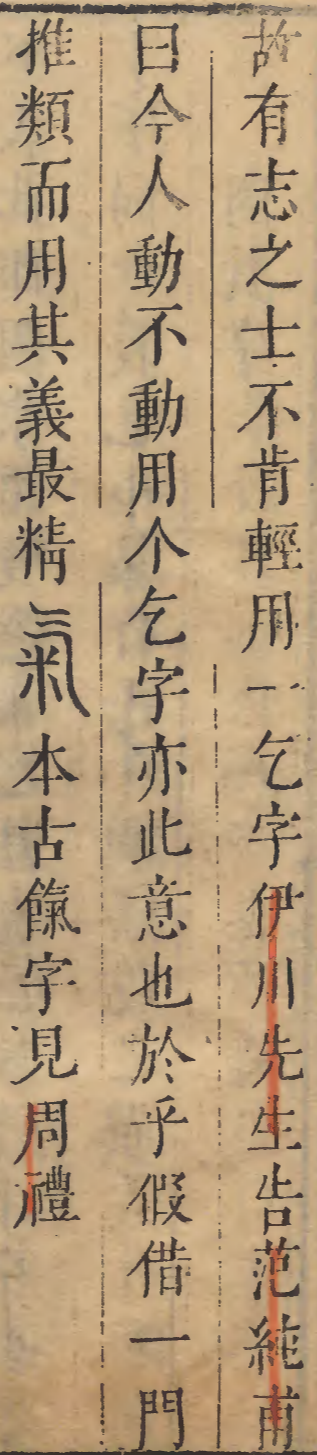 故有志之士不肯輕用一乞字伊川先生告范純甫
曰今人動不動用个乞字亦此意也於乎假借一門
推類而用其義最精氣本古餼字見周禮